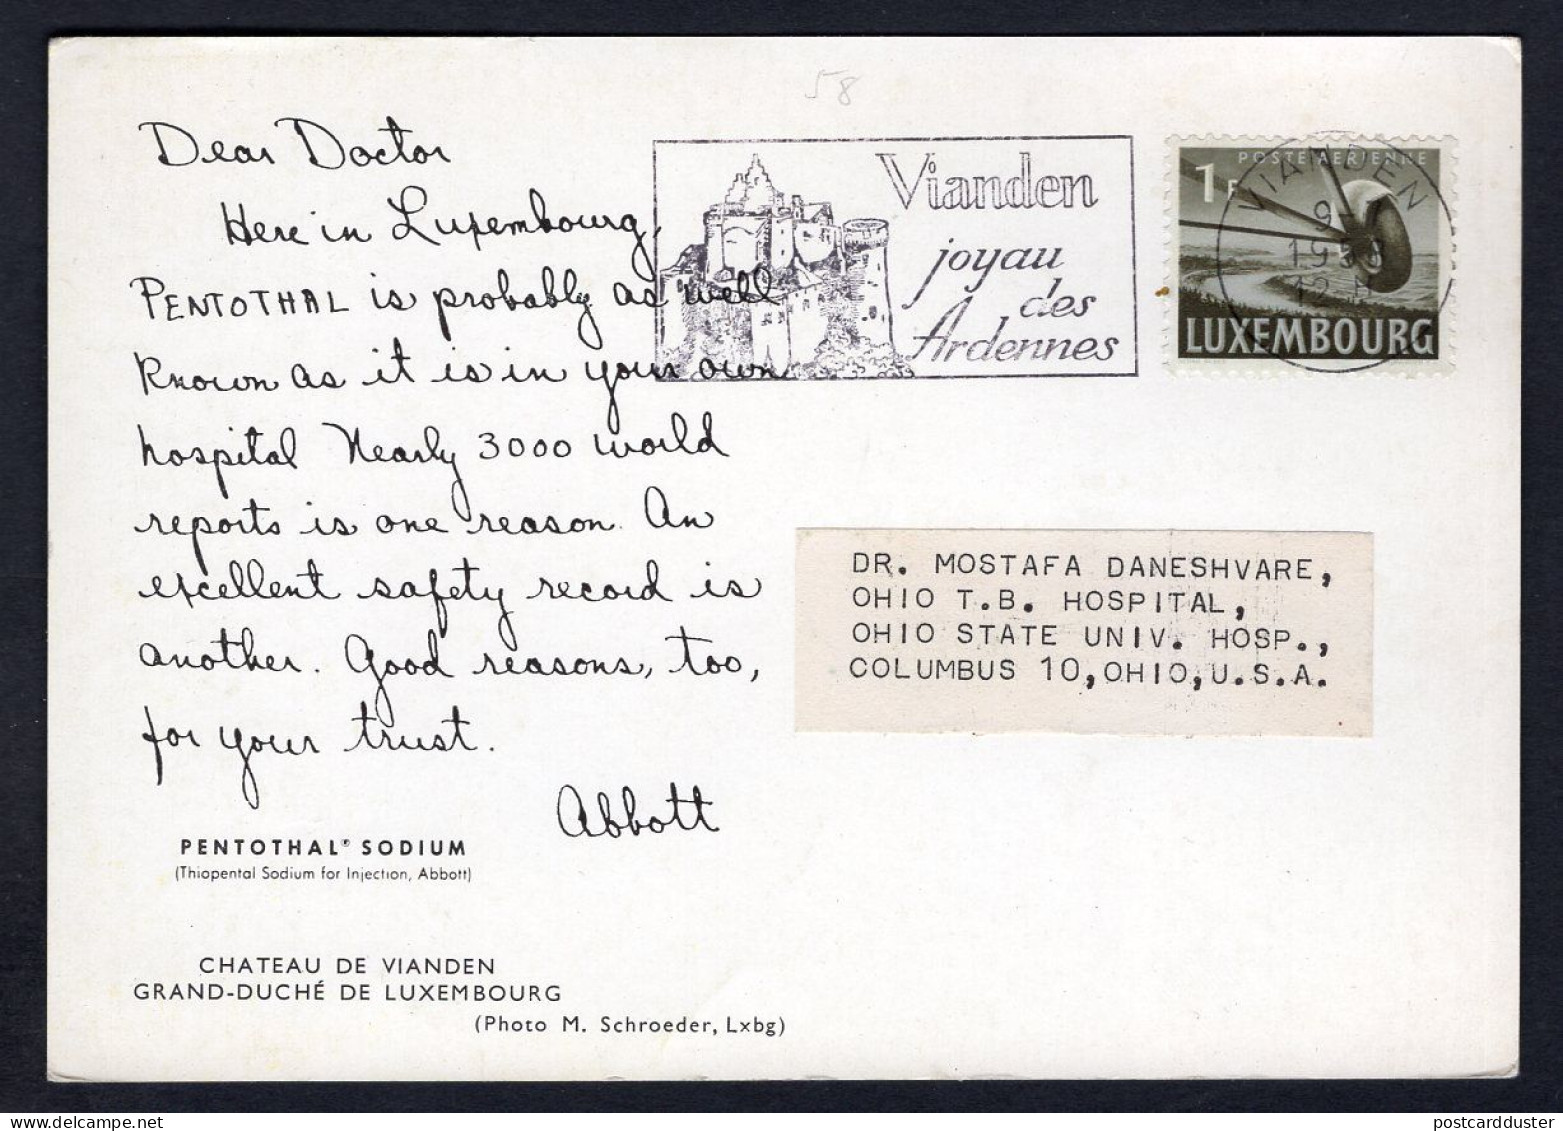 58
Dear Doctor
Here in Luxembourg,
PENTOTHAL is probably as well
known as it is in your own
hospital Nearly 3000 world
reports is one reason. An
excellent safety record is
another. Good reasons, too,
for your trust.
Abbott
PENTOTHAL® SODIUM
(Thiopental Sodium for Injection, Abbott)
CHATEAU DE VIANDEN
GRAND-DUCHÉ DE LUXEMBOURG
(Photo M. Schroeder, Lxbg)
Vianden
joyau
des
Ardennes
POSTE AERIENNE
1F
LUXEMBOURG
VIANDEN
1958
12
DR. MOSTAFA DANESHVARE,
OHIO T.B. HOSPITAL,
OHIO STATE UNIV. HOSP.,
COLUMBUS 10,OHIO,U.S.A.
postcardduster